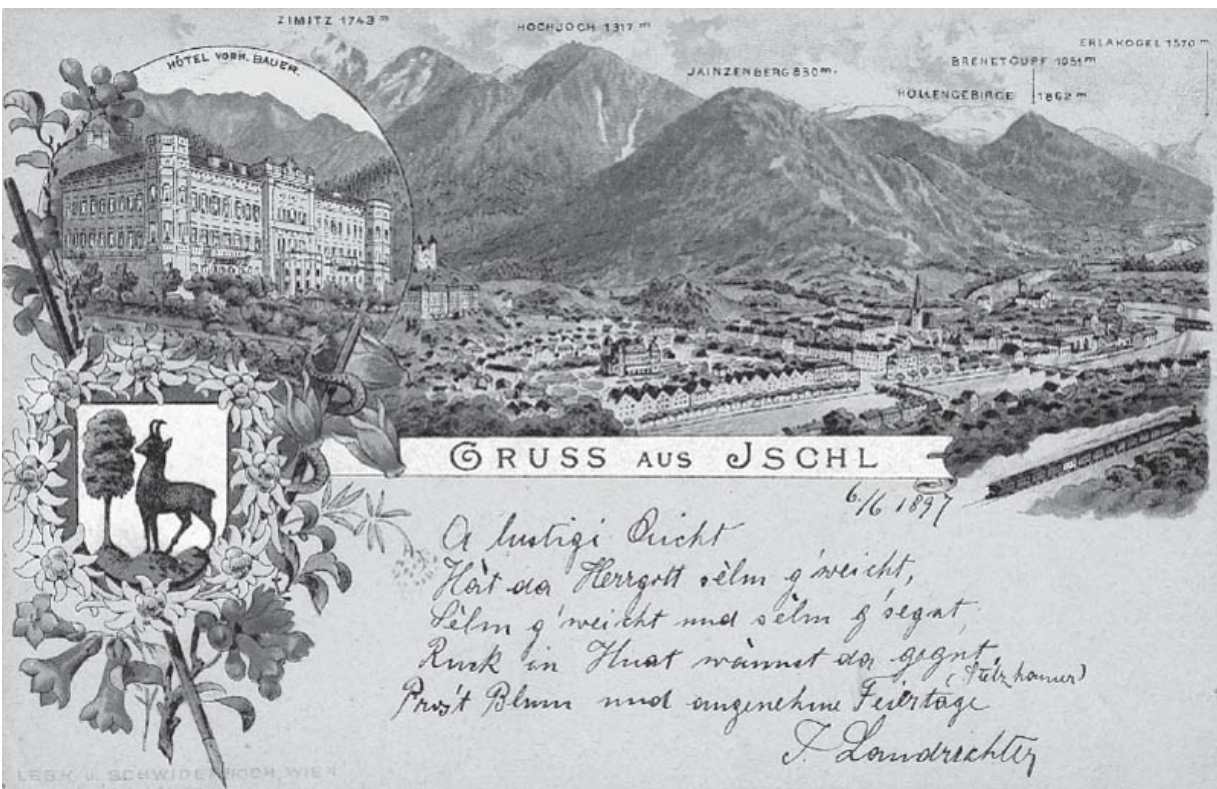 ZIMITZ 1743 m
HOCHJOCH 1317 m
ERLAKOGEL 1570 m
BREHETGUPF 1051 m
JAINZENBERG 830 m.
HÖLLENGEBIRGE 1862 m
HÔTEL VORM. BAUER.
GRUSS AUS JSCHL
6./6 1897
A lustigi
Hát da Herrgott sèlm g'weicht,
Sèlm g'weicht und sèlm g'segnt,
Ruck in Huat wànnst da gegnt,
(Stelzhamer)
Pros't Blum und angenehme Feiertage
J. Landrichter
LESK u. SCHWIDERNOCH, WIEN